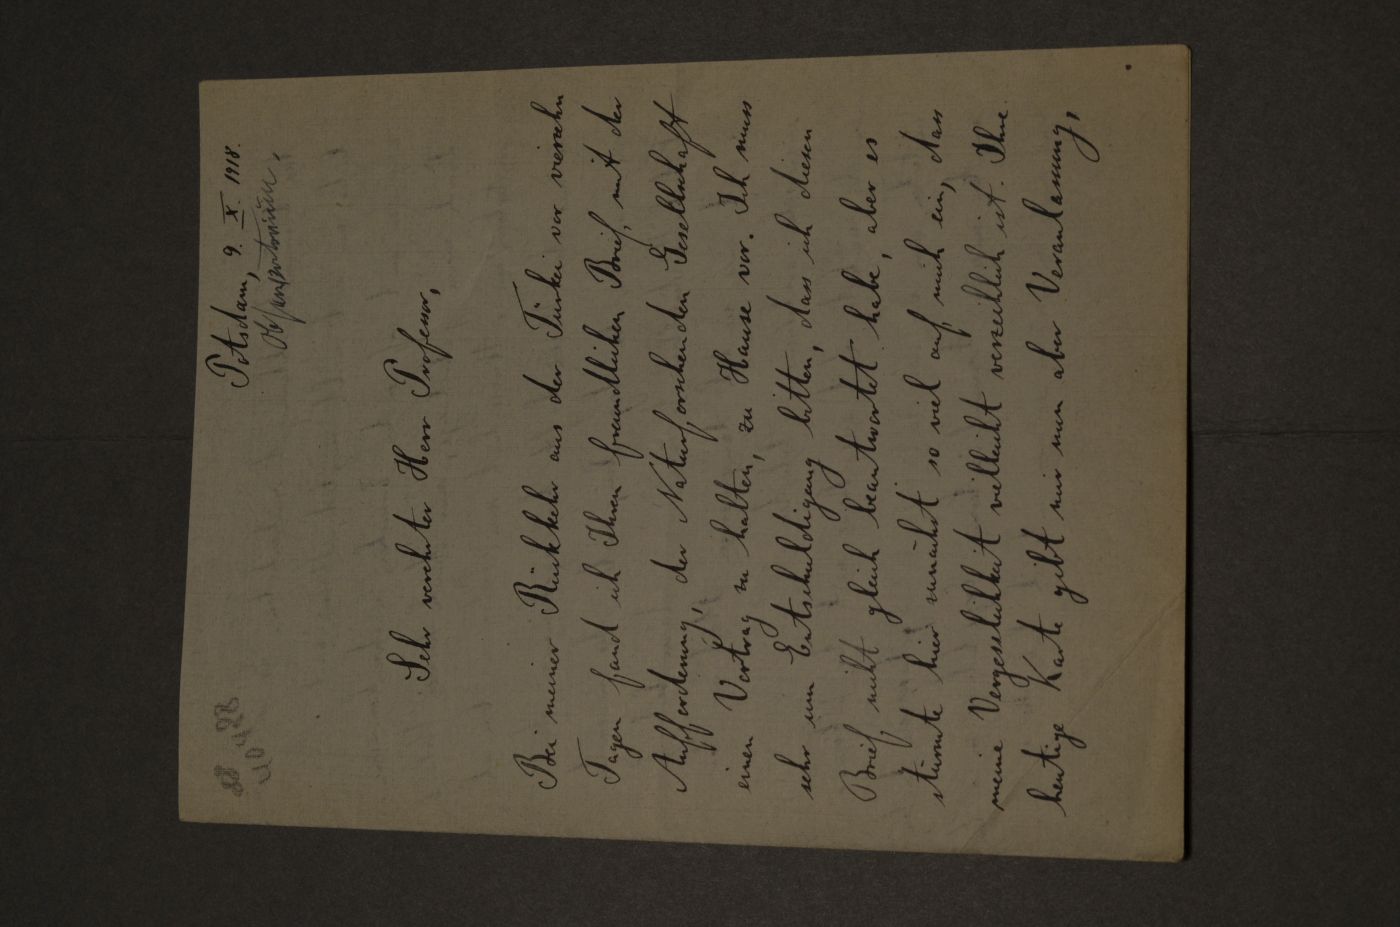 Potsdam, 9. X. 1918.
Observatorium.
Sehr verehrter Herr Professor,
Bei meiner Rückkehr aus der Türkei vor vierzehn
Tagen fand ich Ihren freundlichen Brief, mit der
Aufforderung, der Naturforschenden Gesellschaft
einen Vortrag zu halten, zu Hause vor. Ich muss
sehr um Entschuldigung bitten, dass ich diesen
Brief nicht gleich beantwortet habe, aber es
stürmte hier zunächst so viel auf mich ein, dass
meine Vergesslichkeit vielleicht verzeihlich ist. Ihre
heutige Karte gibt mir nun aber Veranlassung,